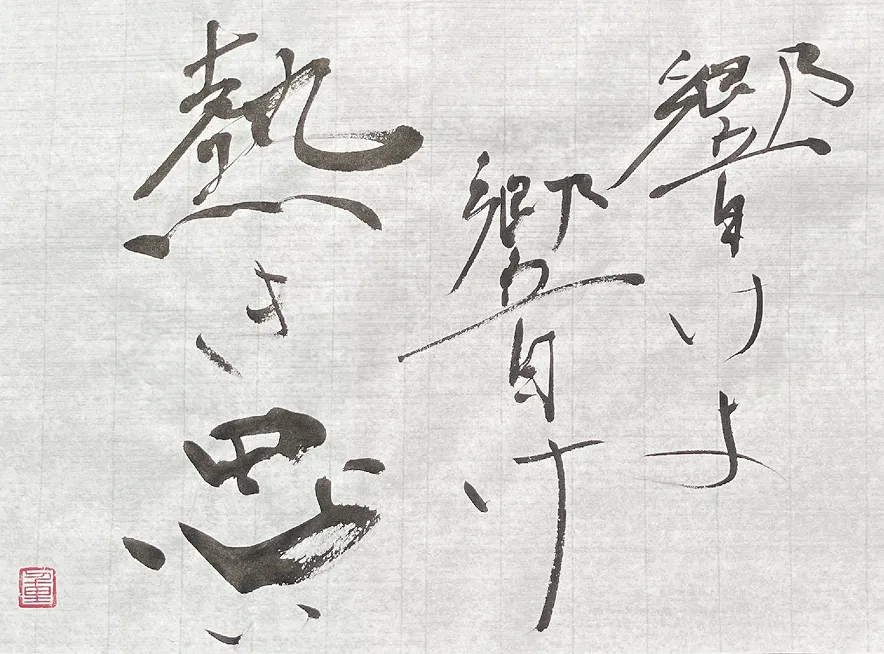 響けよ
響け
熱き思い